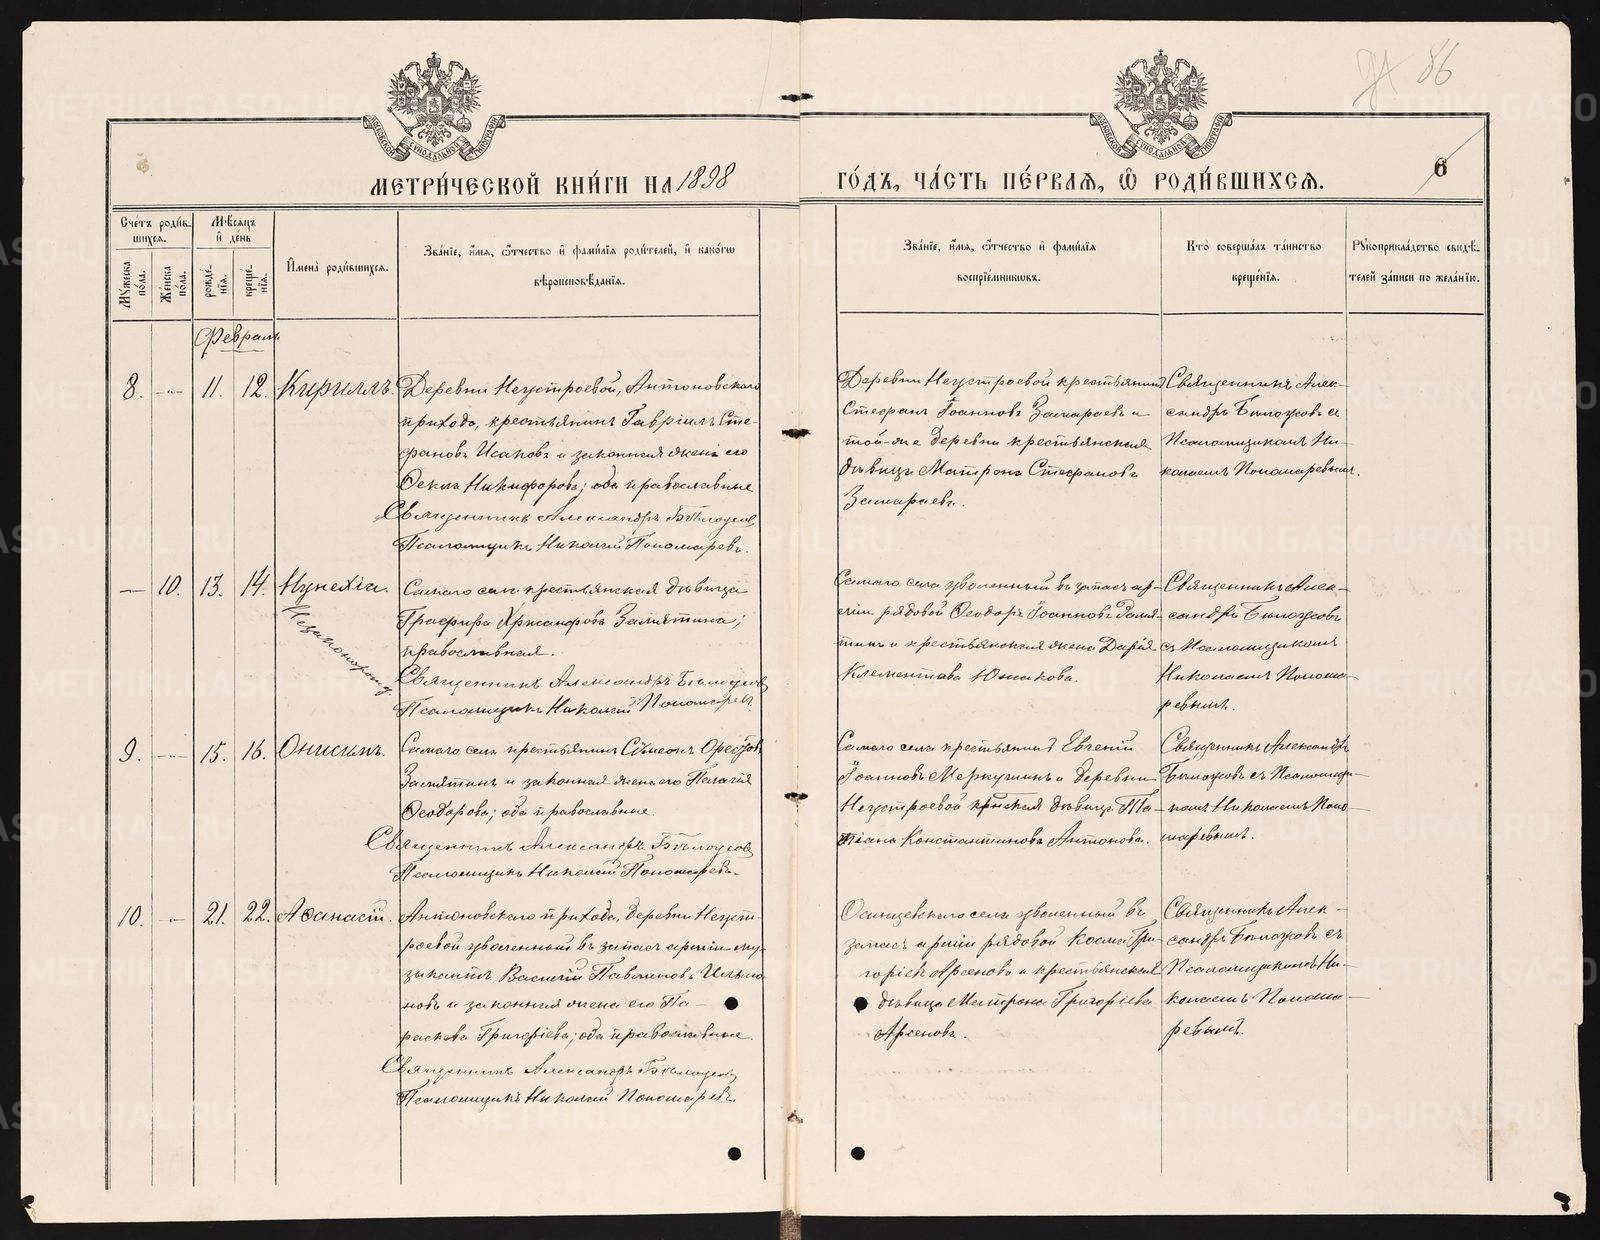 86
МОСКОВСКОЙ СѴНОДАЛЬНОЙ ТИПОГРАФІИ
МОСКОВСКОЙ СѴНОДАЛЬНОЙ ТИПОГРАФІИ
МЕТРИ́ЧЕСКОЙ КНИ́ГИ НА 1898
ГО́ДЪ, ЧА́СТЬ ПЕ́РВАѦ, Ѡ҆ РОДИ́ВШИХСѦ.
6
Сче́тъ роди́в-
шихсѧ.
Мѣ́сѧцъ
и҆ де́нь
Мꙋ́жеска по́ла.
Же́нска по́ла.
рожде́-
нїѧ.
креще́-
нїѧ.
И҆мена̀ роди́вшихсѧ.
Зва́нїе, и҆́мѧ, ѻ҆́тчество и҆ фами́лїѧ роди́телей, и҆ како́гѡ
вѣроисповѣ́данїѧ.
Зва́нїе, и҆́мѧ, ѻ҆́тчество и҆ фами́лїѧ
воспрїе́мникѡвъ.
Кто̀ соверша́лъ та́инство
креще́нїѧ.
Рꙋкоприкла́дство свидѣ́-
телей за́писи по жела́нїю.
Февраль
8. — 11. 12. Кириллъ.
Деревни Неустроевой, Антоновскаго
прихода, крестьянинъ Гавріилъ Сте-
фановъ Исаковъ и законная жена его
Ѳекла Никифорова; оба православные
Священникъ Александръ Бѣлоусовъ
Псаломщикъ Николай Пономаревъ.
Деревни Неустроевой крестьянинъ
Стефанъ Іоанновъ Замараевъ и
той-же деревни крестьянская
дѣвица Матрона Стефанова
Замараева.
Священникъ Алек-
сандръ Бѣлоусовъ съ
Псаломщикомъ Ни-
колаемъ Пономаревымъ.
— 10. 13. 14. Нунехіа.
Незаконорожд.
Самаго села крестьянская дѣвица
Графира Хрисанфова Замятина;
православная.
Священникъ Александръ Бѣлоусовъ
Псаломщикъ Николай Пономаревъ
Самаго села уволенный въ запасъ ар-
міи рядовой Ѳеодоръ Іоанновъ Замя-
тинъ и крестьянская жена Дарія
Клементова Южакова.
Священникъ Алек-
сандръ Бѣлоусовъ
съ Псаломщикомъ
Николаемъ Понома-
ревымъ.
9. — 15. 16. Онисимъ.
Самаго села крестьянинъ Сѵмеонъ Орестовъ
Замятинъ и законная жена его Пелагія
Ѳеодорова; оба православные.
Священникъ Александръ Бѣлоусовъ
Псаломщикъ Николай Пономаревъ.
Самаго села крестьянинъ Евгеній
Іоанновъ Меркушинъ и деревни
Неустроевой крнская дѣвица Та-
тіана Константинова Антонова.
Священникъ Александръ
Бѣлоусовъ съ Псаломщи-
комъ Николаемъ Поно-
маревымъ.
10. — 21. 22. Аѳанасій.
Антоновскаго прихода, деревни Неуст-
роевой уволенный въ запасъ арміи му-
зыкантъ Василій Павлиновъ
новъ и законная жена его Па-
раскева Григоріева; оба православные.
Священникъ Александръ Бѣлоусовъ
Псаломщикъ Николай Пономаревъ.
Осинцевскаго села уволенный въ
запасъ арміи рядовой Косма Гри-
горіевъ Арсеновъ и крестьянская
дѣвица Матрона Григоріева
Арсенова.
Священникъ Алек-
сандръ Бѣлоусовъ съ
Псаломщикомъ Ни-
колаемъ Понома-
ревымъ.
METRIKI.GASO-URAL.RU